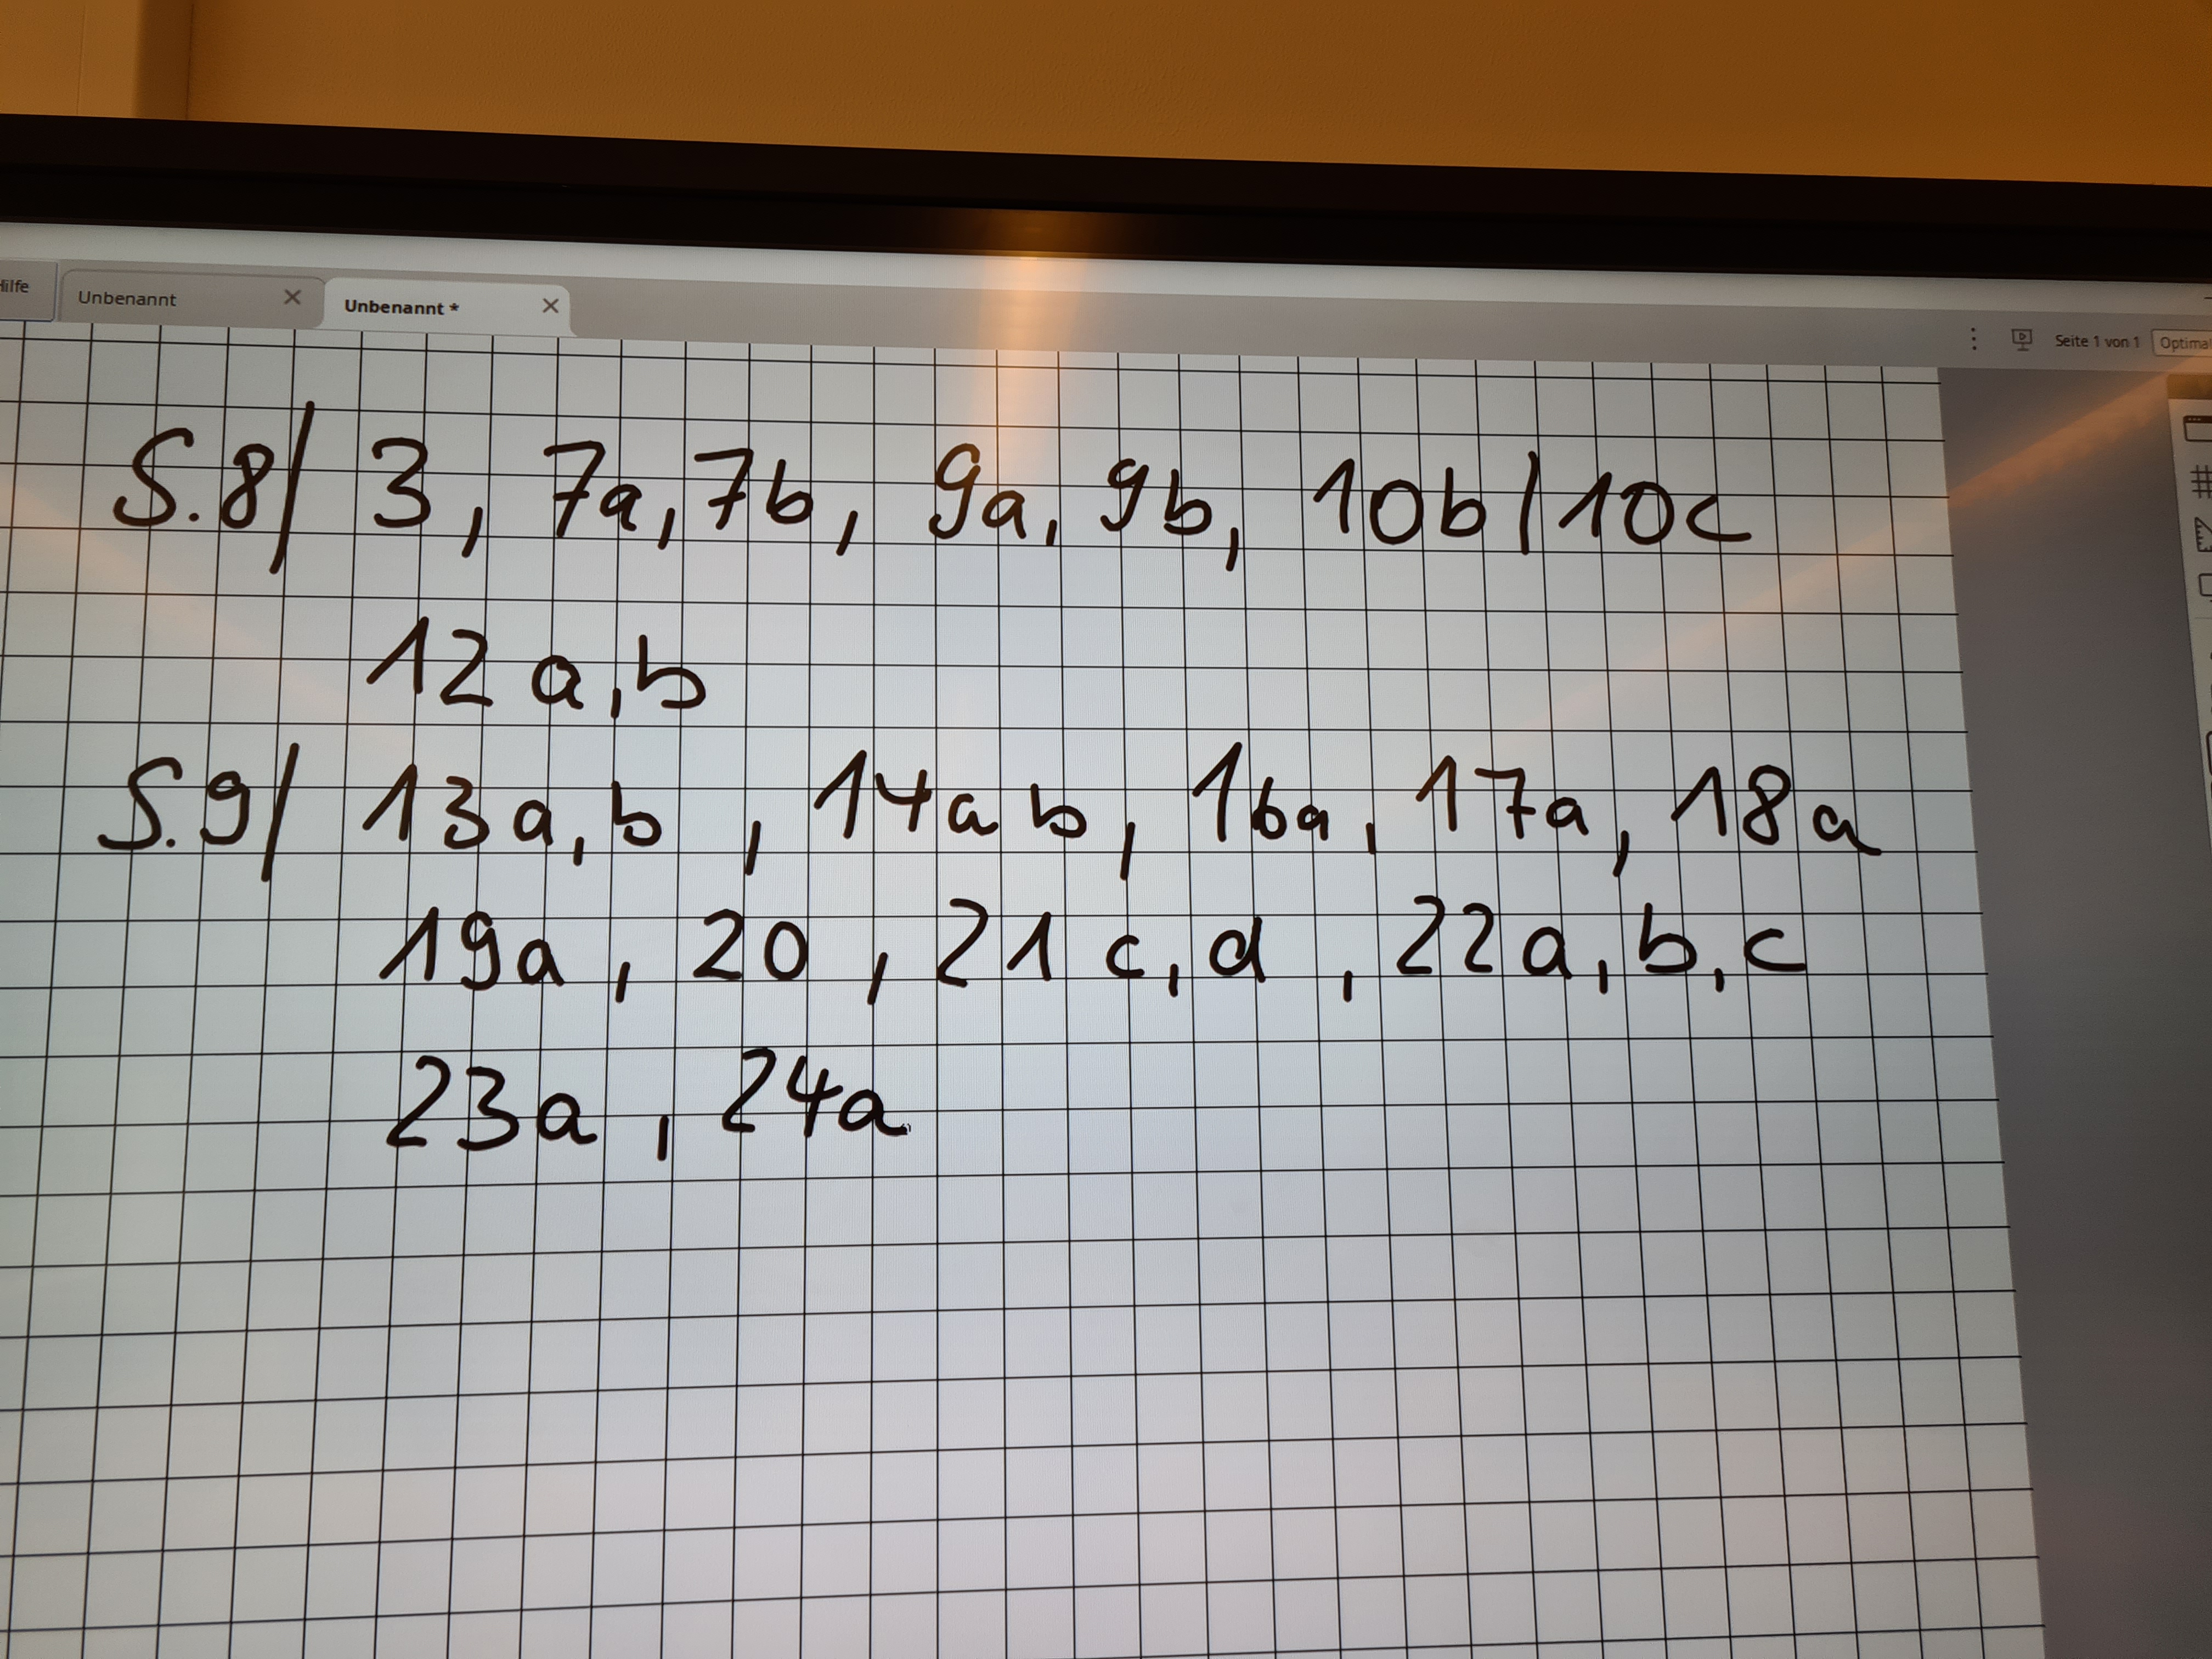 Hilfe Unbenannt Unbenannt *
Seite 1 von 1
S.8/ 3, 7a, 7b, 9a, 9b, 10b/10c
12 a,b
S.9/ 13a,b, 14a b, 16a, 17a, 18a
19a, 20, 21 c,d, 22a,b,c
23a, 24a